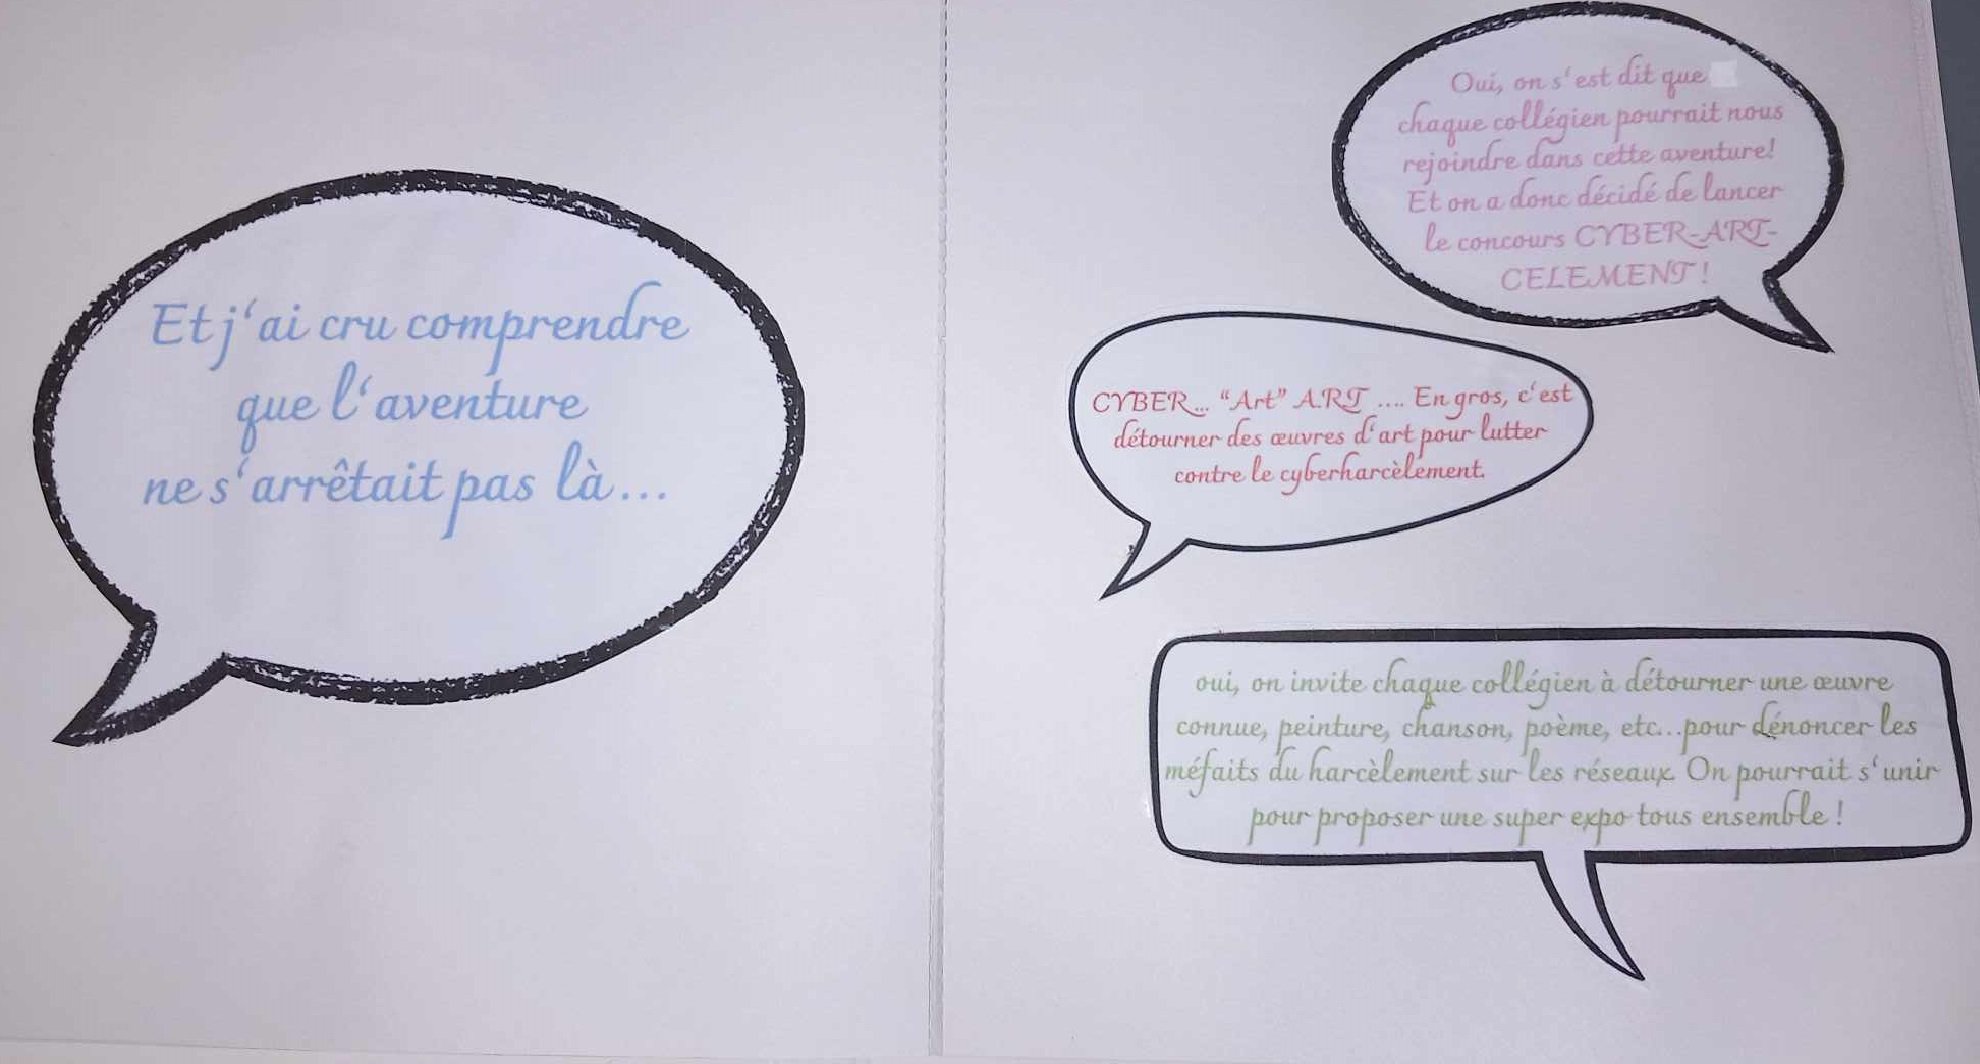 Et j'ai cru comprendre
que l'aventure
ne s'arrêtait pas là...
Oui, on s'est dit que
chaque collégien pourrait nous
rejoindre dans cette aventure!
Et on a donc décidé de lancer
le concours CYBER-ART-
CELEMENT !
CYBER... "Art" ART .... En gros, c'est
détourner des œuvres d'art pour lutter
contre le cyberharcèlement.
oui, on invite chaque collégien à détourner une œuvre
connue, peinture, chanson, poème, etc...pour dénoncer les
méfaits du harcèlement sur les réseaux. On pourrait s'unir
pour proposer une super expo tous ensemble !